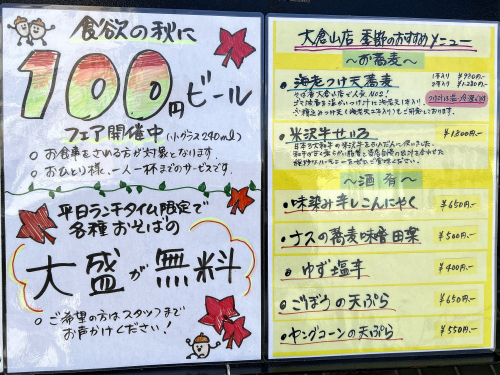 食欲の秋に
100円ビール
フェア開催中(小グラス240ml)
○お食事をされる方が対象となります。
○おひとり様、一人一杯までのサービスです。
平日ランチタイム限定で
各種おそばの
大盛が無料
○ご希望の方はスタッフまで
お声かけください!
大倉山店 季節のおすすめメニュー
~お蕎麦~
・海老つけ天蕎麦
1本入り ¥930円-
2本入り ¥1,230円-
そば書大倉山店で人気No2!
・米沢牛せいろ ¥1,800円-
~酒肴~
・味染み辛しこんにゃく ¥650円-
・ナスの蕎麦味噌田楽 ¥500円-
・ゆず塩辛 ¥400円-
・ごぼうの天ぷら ¥650円-
・ヤングコーンの天ぷら ¥550円-